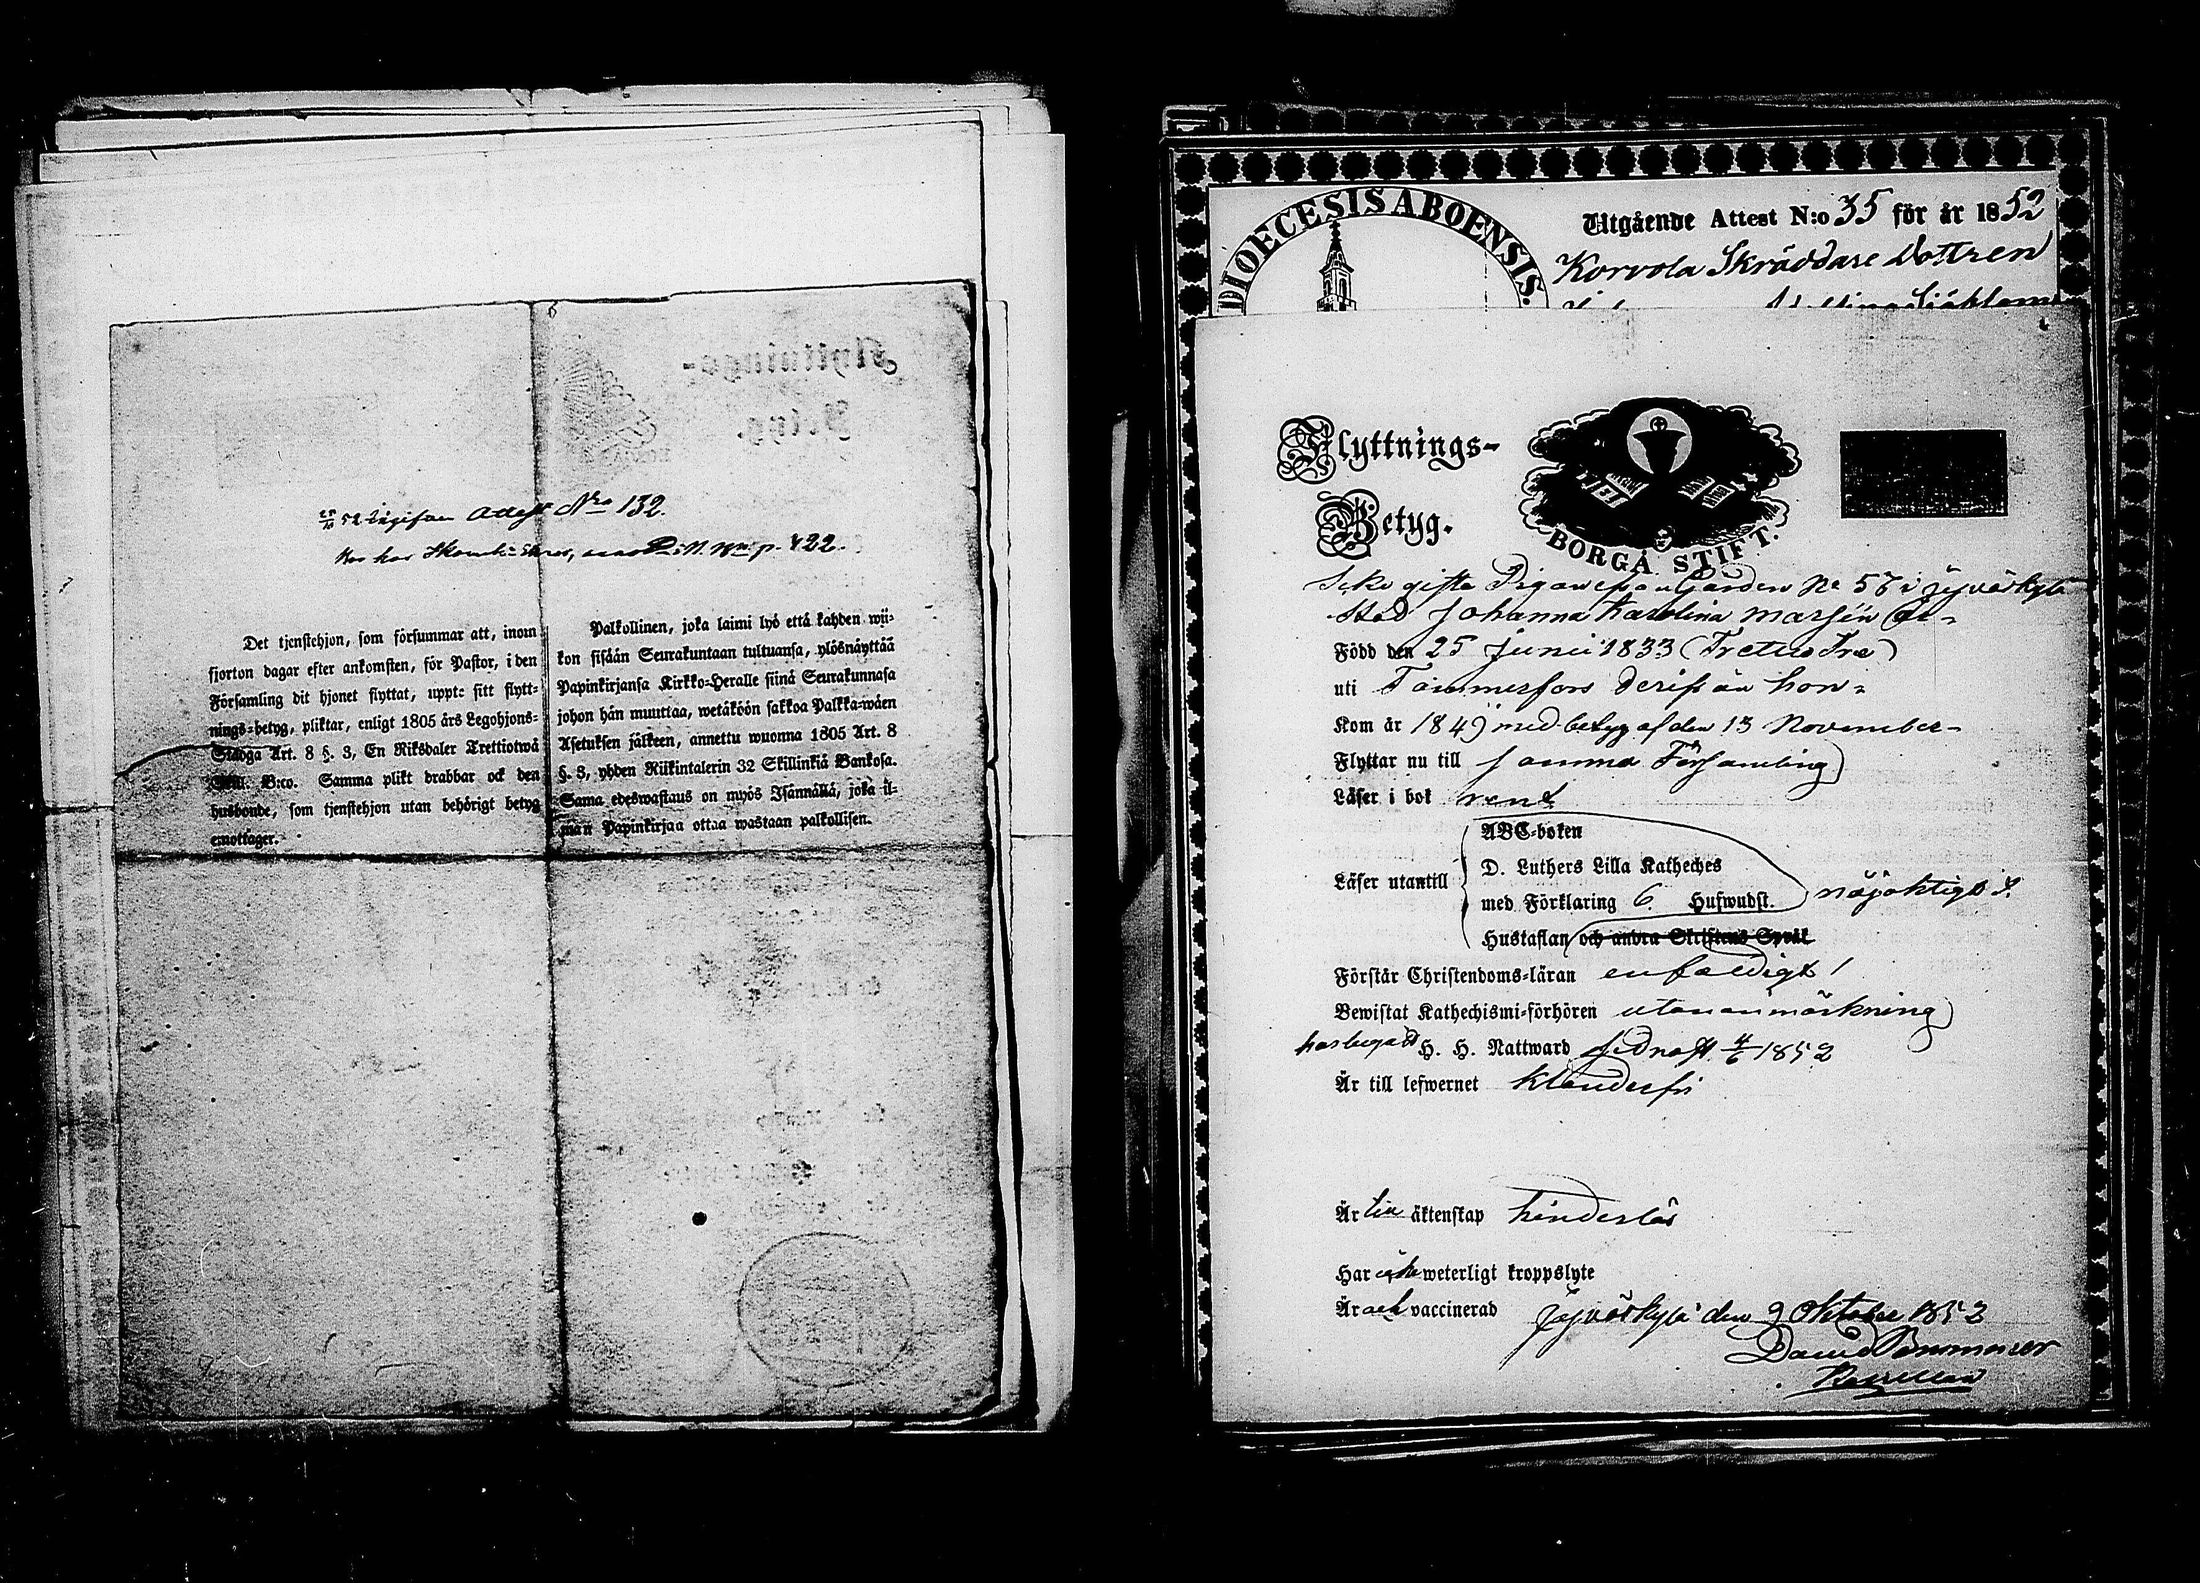 52 Attest Nro 132.
p. 422.
Det tjenstehjon, som försummar att, inom
fjorton dagar efter ankomsten, för Pastor, i den
Församling dit hjonet flyttat, uppte sitt flytt-
nings-betyg, pliktar, enligt 1805 års Legohjons-
Stadga Art. 8 §. 3, En Riksdaler Trettiotwå
Skill. B:co. Samma plikt drabbar ock den
husbonde, som tjenstehjon utan behörigt betyg
emottager.
Palkollinen, joka laimi lyö että kahden wii-
kon sisään Seurakuntaan tultuansa, ylösnäyttää
Papinkirjansa Kirkko-Heralle siinä Seurakunnasa
johon hän muuttaa, wetäköön sakkoa Palkka-wäen
Asetuksen jälkeen, annettu wuonna 1805 Art. 8
§. 3, yhden Riikintalerin 32 Skillinkiä Bankosa.
Sama edeswastaus on myös Isännällä, joka il-
man Papinkirjaa ottaa wastaan palkollisen.
DIOECESIS ABOENSIS.
Utgående Attest N:o 35 för år 1852
Korvola Skräddare Dottren
Flyttnings-
Betyg.
BORGÅ STIFT.
gifta Pigan Gården No 57 i Jyväskylä
Stad Johanna Karolina
Född den 25 Junii 1833 (Trettio Tre)
uti Tammerfors derifrån hon
Kom år 1849 med betyg af den 13 November
Flyttar nu till samma Församling
Läser i bok rent
ABC-boken
D. Luthers Lilla Katheches
Läser utantill
med Förklaring 6. Hufwudst. nöjaktigt
Hustaflan och andra Skriftens Språk
Förstår Christendoms-läran enfaldigt
Bewistat Kathechismi-förhören utan anmärkning
har begått H. H. Nattward sednast 4/6 1852
Är till lefwernet klanderfri
Är till äktenskap hinderlös
Har icke weterligt kroppslyte
Är ock vaccinerad Jyväskylä den 9 Oktober 1852
David
Kapellan